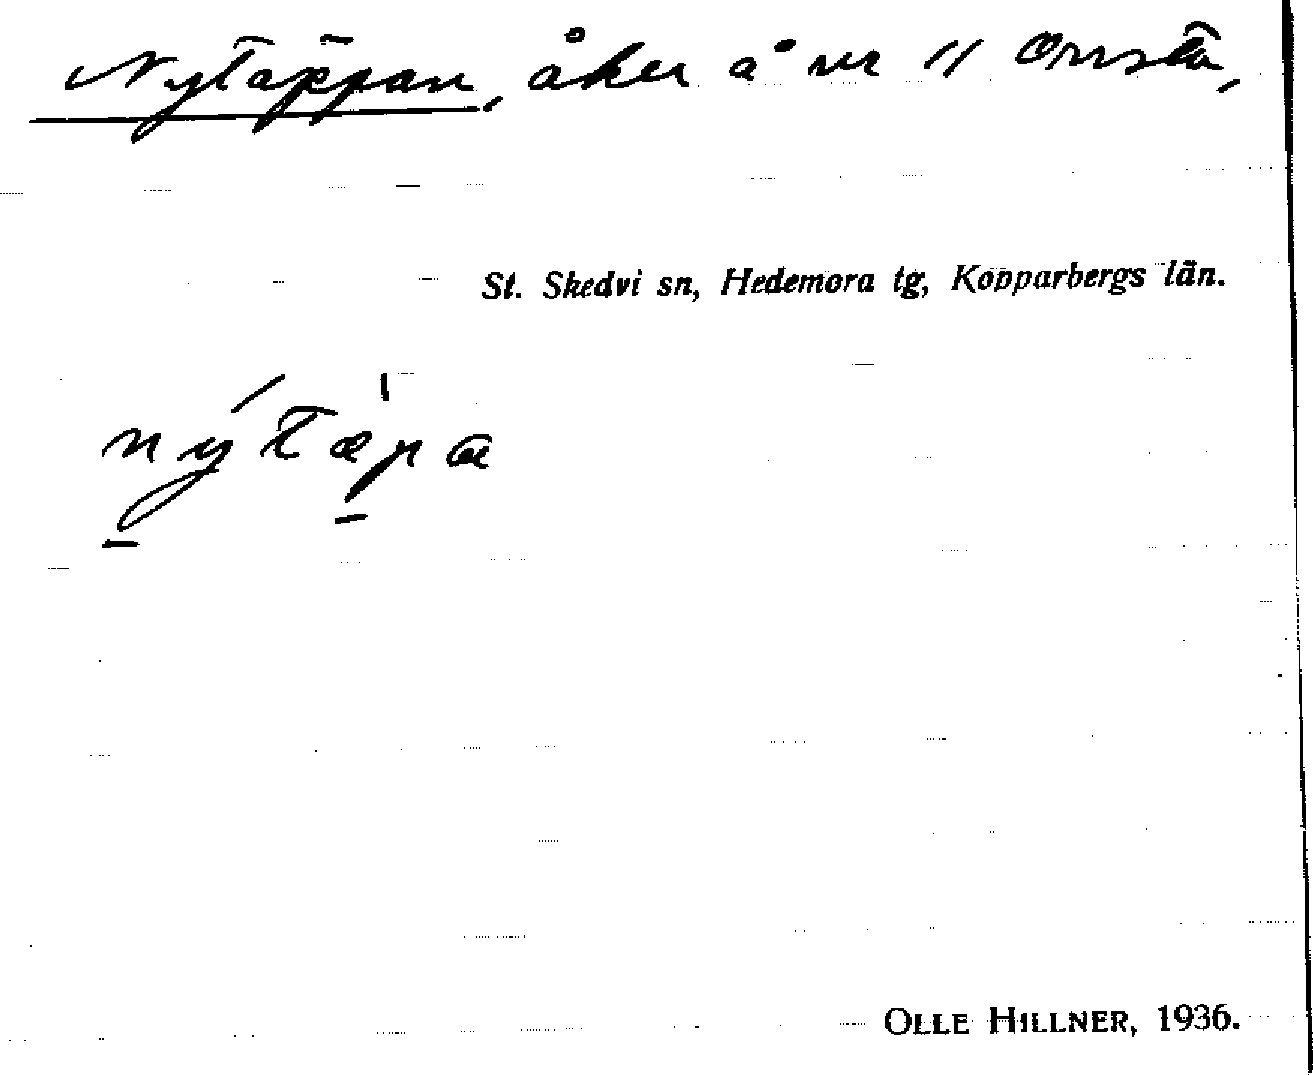 Nytäppan, åker å nr 11 Onsta,
St. Skedvi sn, Hedemora tg, Kopparbergs län.
nýtæ̀pa
OLLE HILLNER, 1936.